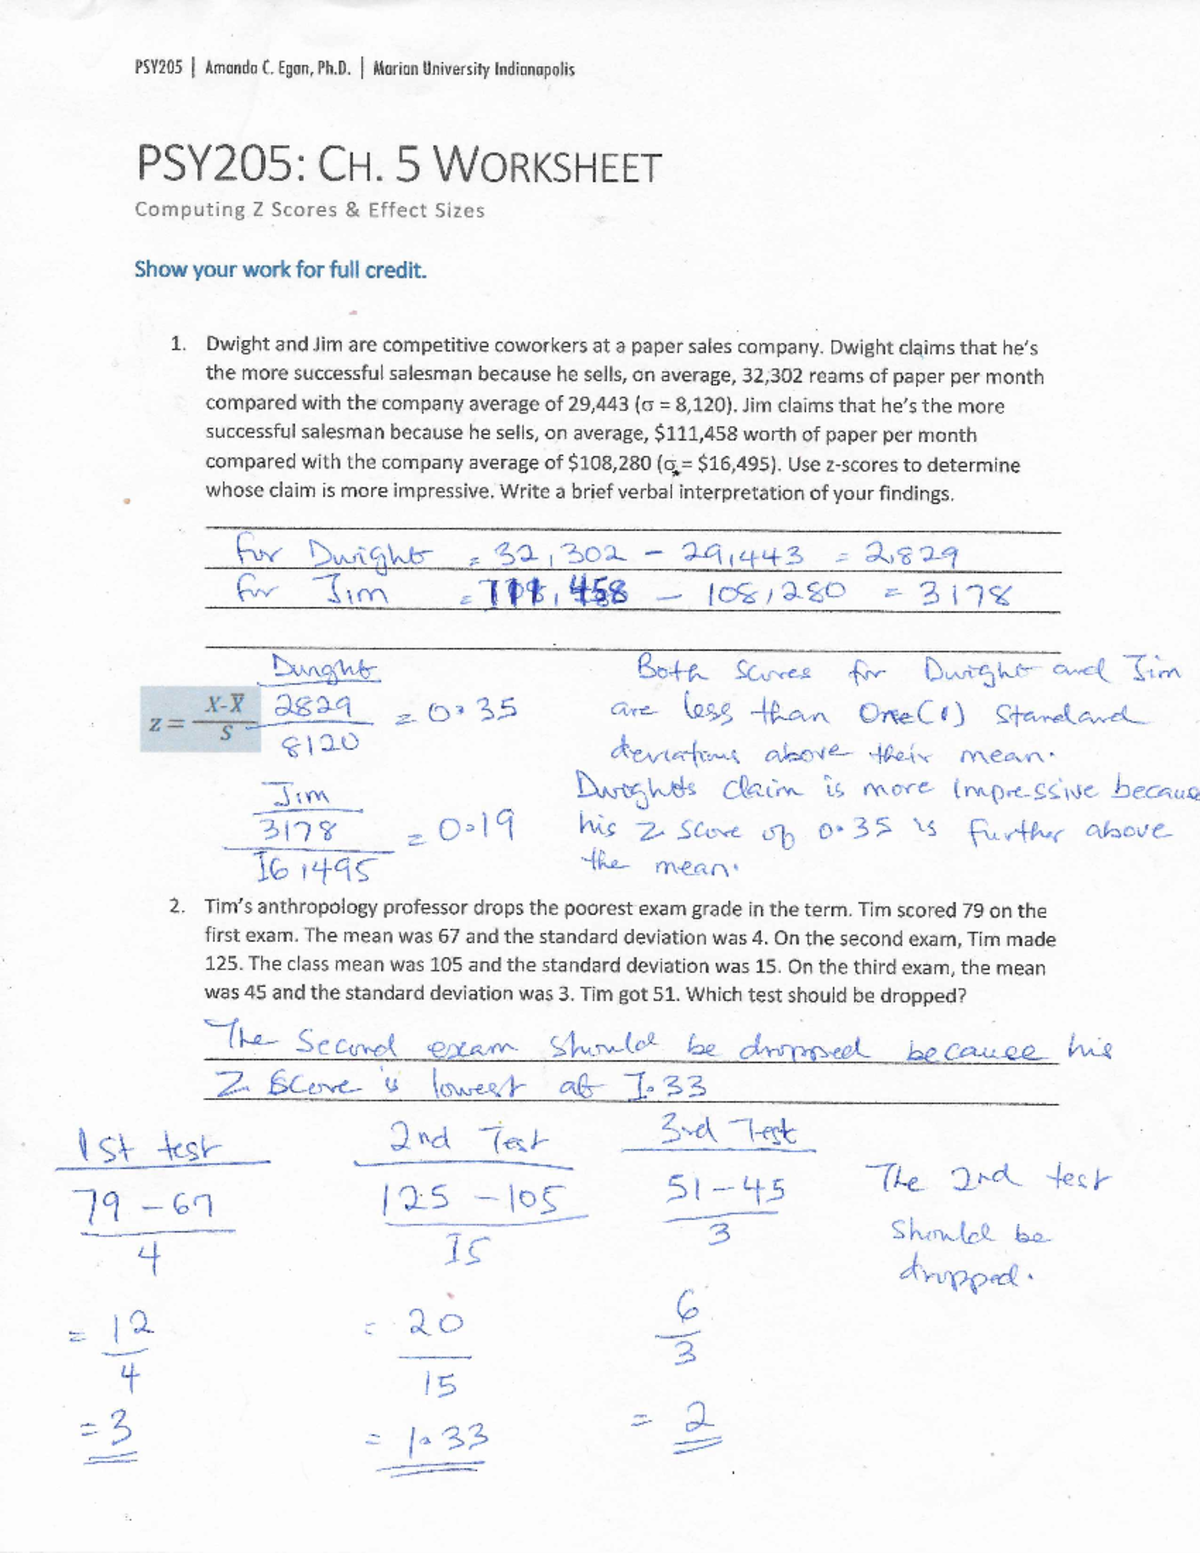 PSY205 | Amanda C. Egan, Ph.D. | Marian University Indianapolis
PSY205: CH. 5 WORKSHEET
Computing Z Scores & Effect Sizes
Show your work for full credit.
1. Dwight and Jim are competitive coworkers at a paper sales company. Dwight claims that he's
the more successful salesman because he sells, on average, 32,302 reams of paper per month
compared with the company average of 29,443 (σ = 8,120). Jim claims that he's the more
successful salesman because he sells, on average, $111,458 worth of paper per month
compared with the company average of $108,280 (σ = $16,495). Use z-scores to determine
whose claim is more impressive. Write a brief verbal interpretation of your findings.
for Dwight = 32,302 - 29,443 = 2,829
for Jim = 111,458 - 108,280 = 3178
Dwight
z = X-X̅ / S
2829 / 8120 = 0.35
Jim
3178 / 16,495 = 0.19
Both Scores for Dwight and Jim
are less than One(1) Standard
deviations above their mean.
Dwight's claim is more impressive because
his z score of 0.35 is further above
the mean.
2. Tim's anthropology professor drops the poorest exam grade in the term. Tim scored 79 on the
first exam. The mean was 67 and the standard deviation was 4. On the second exam, Tim made
125. The class mean was 105 and the standard deviation was 15. On the third exam, the mean
was 45 and the standard deviation was 3. Tim got 51. Which test should be dropped?
The Second exam should be dropped because his
Z Score is lowest at 1.33
1st test
79 - 67
4
= 12
4
= 3
2nd Test
125 - 105
15
= 20
15
= 1.33
3rd Test
51 - 45
3
6
3
= 2
The 2nd test
should be
dropped.